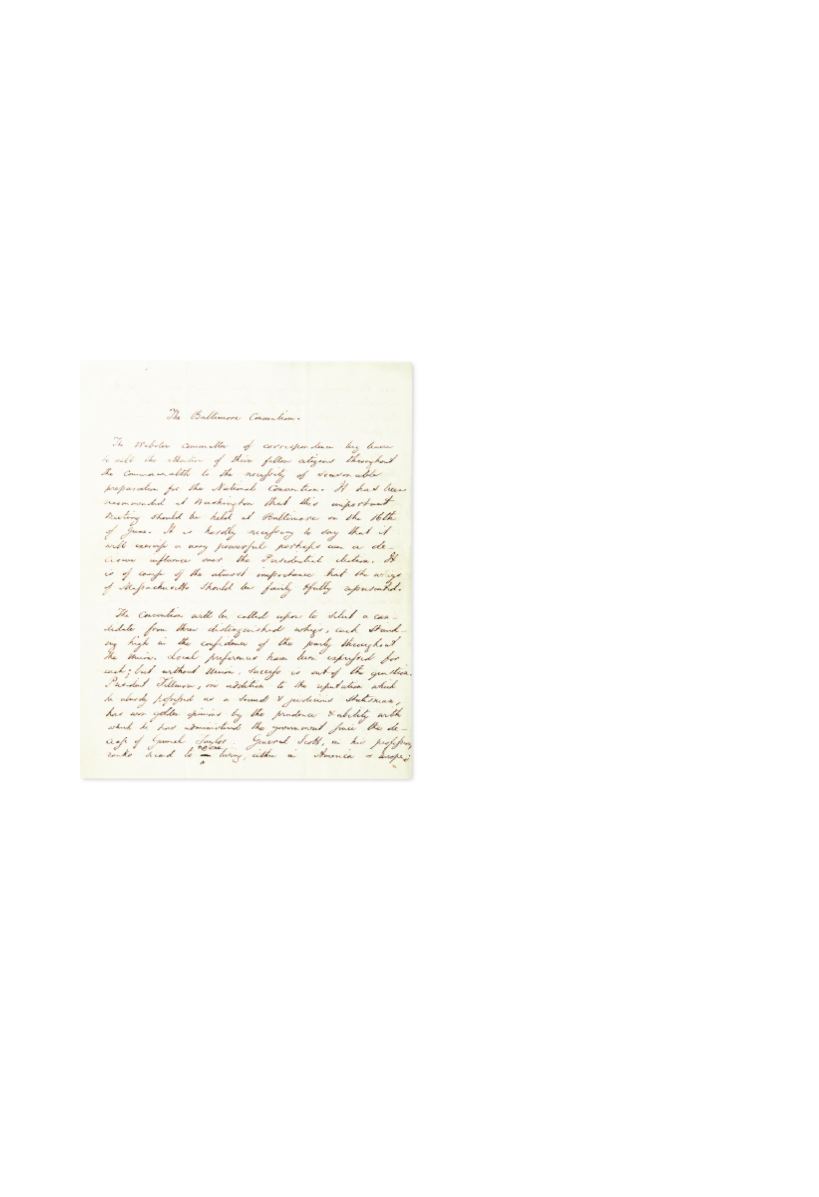 The Baltimore Convention.
The Webster Committee of correspondence beg leave
to call the attention of their fellow citizens throughout
the Commonwealth to the necessity of seasonable
preparation for the National Convention. It has been
recommended at Washington that this important
meeting should be held at Baltimore on the 16th
of June. It is hardly necessary to say that it
will exercise a very powerful perhaps even a de-
cisive influence over the Presidential election. It
is of course of the utmost importance that the whigs
of Massachusetts should be fairly & fully represented.
The Convention will be called upon to select a can-
didate from three distinguished whigs, each stand-
ing high in the confidence of the party throughout
the Union. Local preferences have been expressed for
each; but without Union, success is out of the question.
President Fillmore, in addition to the reputation which
he already possessed as a sound & judicious statesman,
has won golden opinions by the prudence & ability with
which he has administered the government since the de-
cease of General Taylor. General Scott, in his profession,
none
ranks second to living, either in America or Europe;